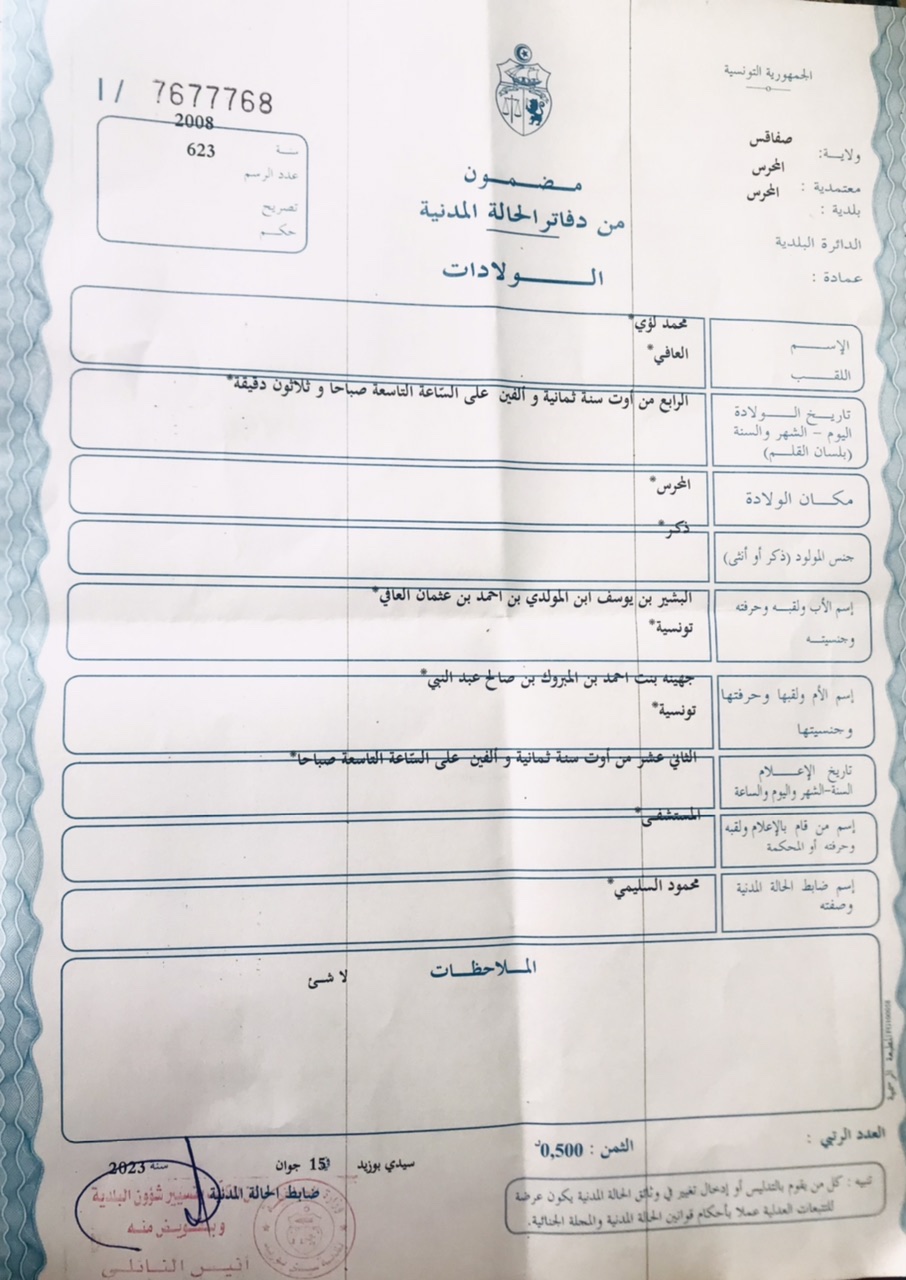 الجمهورية التونسية
ولاية: صفاقس
معتمدية : المحرس
بلدية : المحرس
الدائرة البلدية
عمادة :
I/ 7677768
سنة 2008
عدد الرسم 623
تصريح
حكم
مضمون
من دفاتر الحالة المدنية
الولادات
الإسم محمد لؤي*
اللقب العافي*
تاريخ الولادة
اليوم - الشهر والسنة
(بلسان القلم)
الرابع من أوت سنة ثمانية و ألفين على السّاعة التاسعة صباحا و ثلاثون دقيقة*
مكان الولادة المحرس*
جنس المولود (ذكر أو أنثى) ذكر*
إسم الأب ولقبه وحرفته
وجنسيته
البشير بن يوسف ابن المولدي بن احمد بن عثمان العافي*
تونسية*
إسم الأم ولقبها وحرفتها
وجنسيتها
جهينه بنت احمد بن المبروك بن صالح عبد النبي*
تونسية*
تاريخ الإعلام
السنة-الشهر واليوم والساعة
الثاني عشر من أوت سنة ثمانية و ألفين على السّاعة التاسعة صباحا*
إسم من قام بالإعلام ولقبه
وحرفته أو المحكمة
المستشفى*
إسم ضابط الحالة المدنية
وصفته
محمود السليمي*
الملاحظات
لا شئ
المطبعة الرسمية
العدد الرتبي :
الثمن : 0,500د
سيدي بوزيد 15 جوان سنة 2023
ضابط الحالة المدنية
تسيير شؤون البلدية
وبتفويض منه
أنيس النائلي
تنبيه : كل من يقوم بالتدليس أو إدخال تغيير في وثائق الحالة المدنية يكون عرضة
للتتبعات العدلية عملا بأحكام قوانين الحالة المدنية والمجلة الجنائية.